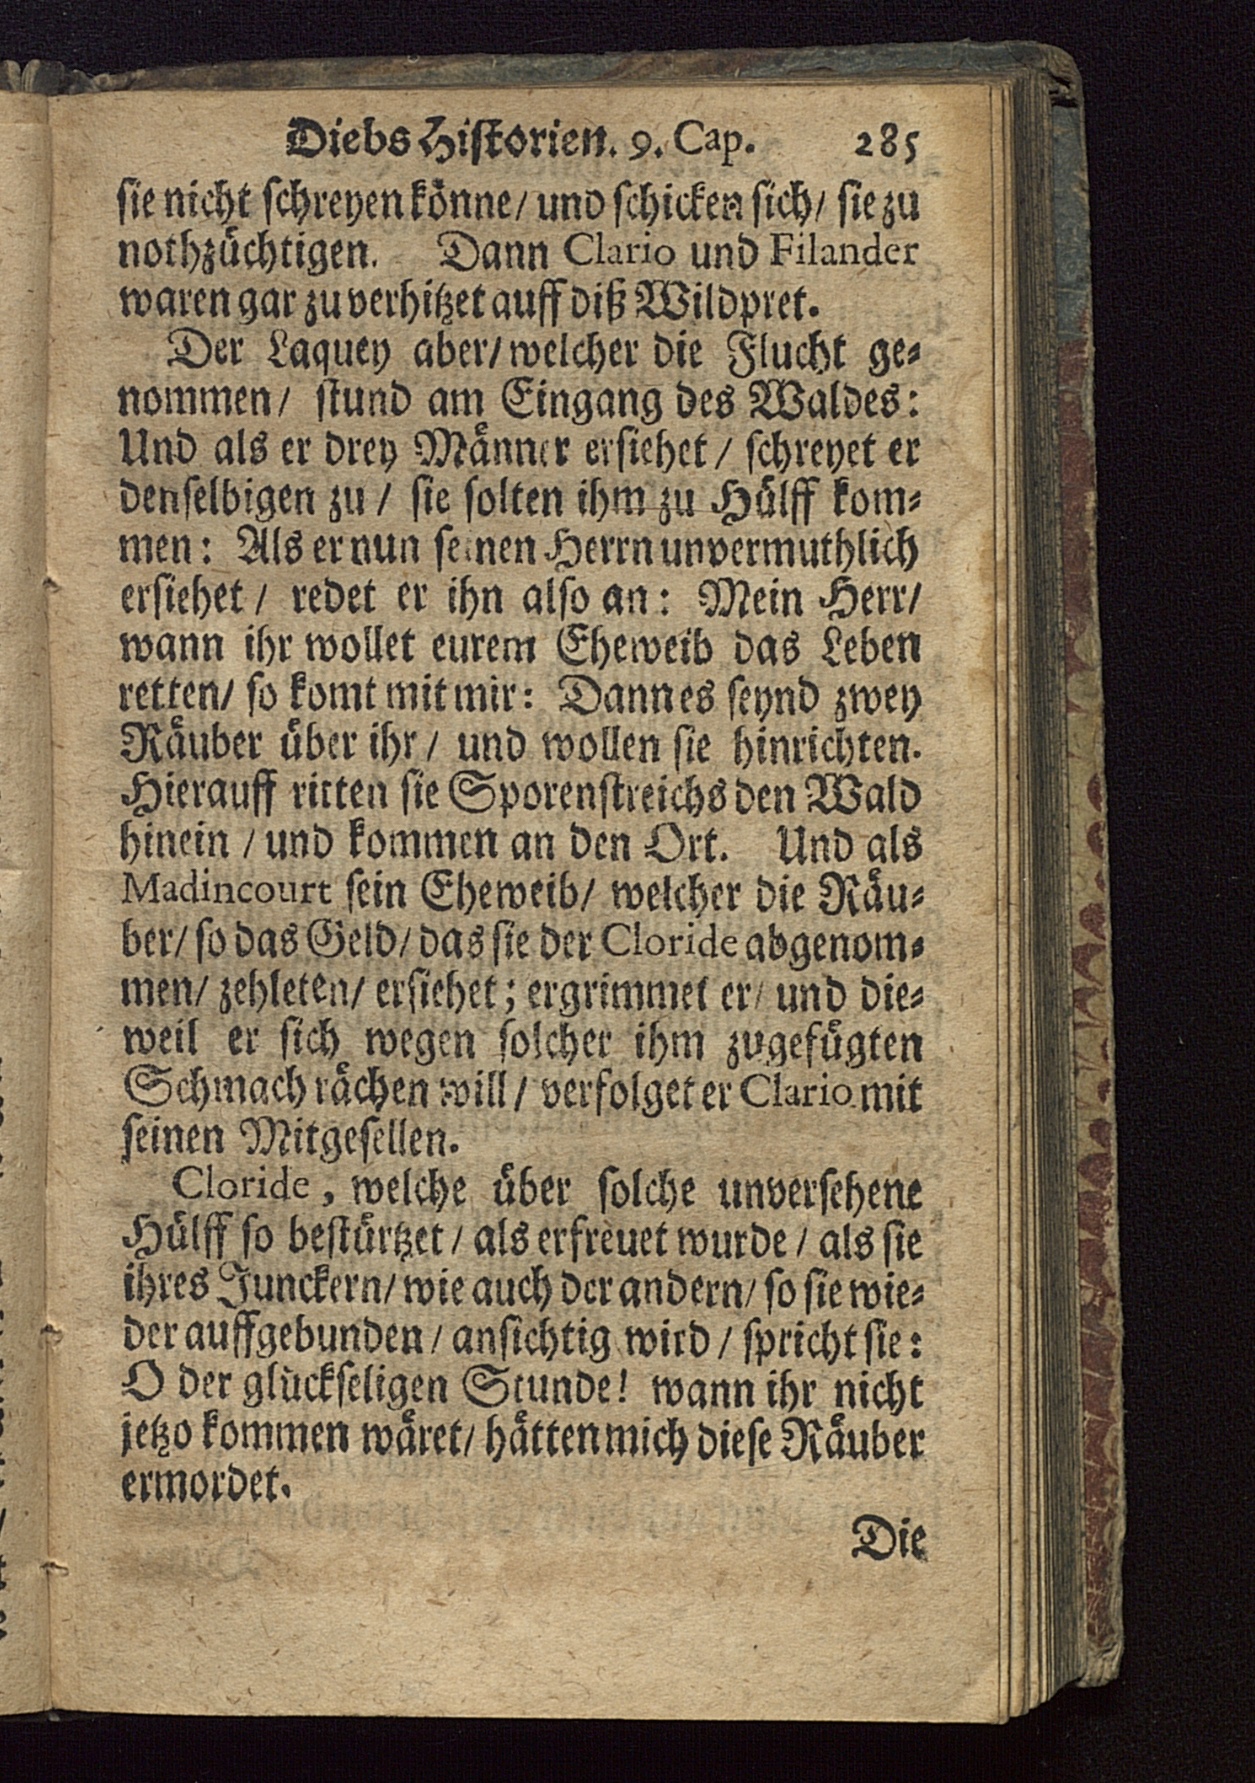 Diebs Historien. 9. Cap. 285
sie nicht schreyen könne/ und schicken sich/ sie zu
nothzüchtigen. Dann Clario und Filander
waren gar zu verhitzet auff diß Wildpret.
Der Laquey aber/ welcher die Flucht ge-
nommen/ stund am Eingang des Waldes:
Und als er drey Männer ersiehet/ schreyet er
denselbigen zu/ sie solten ihm zu Hülff kom-
men: Als er nun seinen Herrn unvermuthlich
ersiehet/ redet er ihn also an: Mein Herr/
wann ihr wollet eurem Eheweib das Leben
retten/ so komt mit mir: Dann es seynd zwey
Räuber über ihr/ und wollen sie hinrichten.
Hierauff ritten sie Sporenstreichs den Wald
hinein/ und kommen an den Ort. Und als
Madincourt sein Eheweib/ welcher die Räu-
ber/ so das Geld/ das sie der Cloride abgenom-
men/ zehleten/ ersiehet; ergrimmet er/ und die-
weil er sich wegen solcher ihm zugefügten
Schmach rächen will/ verfolget er Clario mit
seinen Mitgesellen.
Cloride, welche über solche unversehene
Hülff so bestürtzet/ als erfreuet wurde/ als sie
ihres Junckern/ wie auch der andern/ so sie wie-
der auffgebunden/ ansichtig wird/ spricht sie:
O der glückseligen Stunde! wann ihr nicht
jetzo kommen wäret/ hätten mich diese Räuber
ermordet.
Die